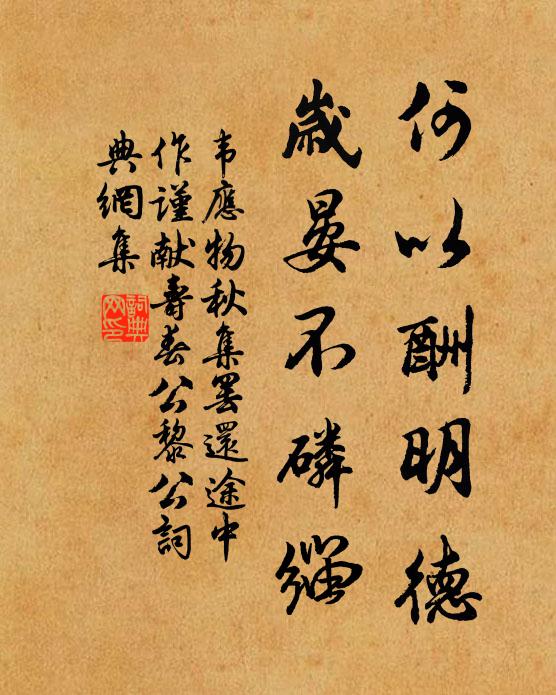 何以酬明德
歲晏不磷緇
韦應物秋集罢還途中
作谨献壽春公黎公詞
典網集
詞典網印